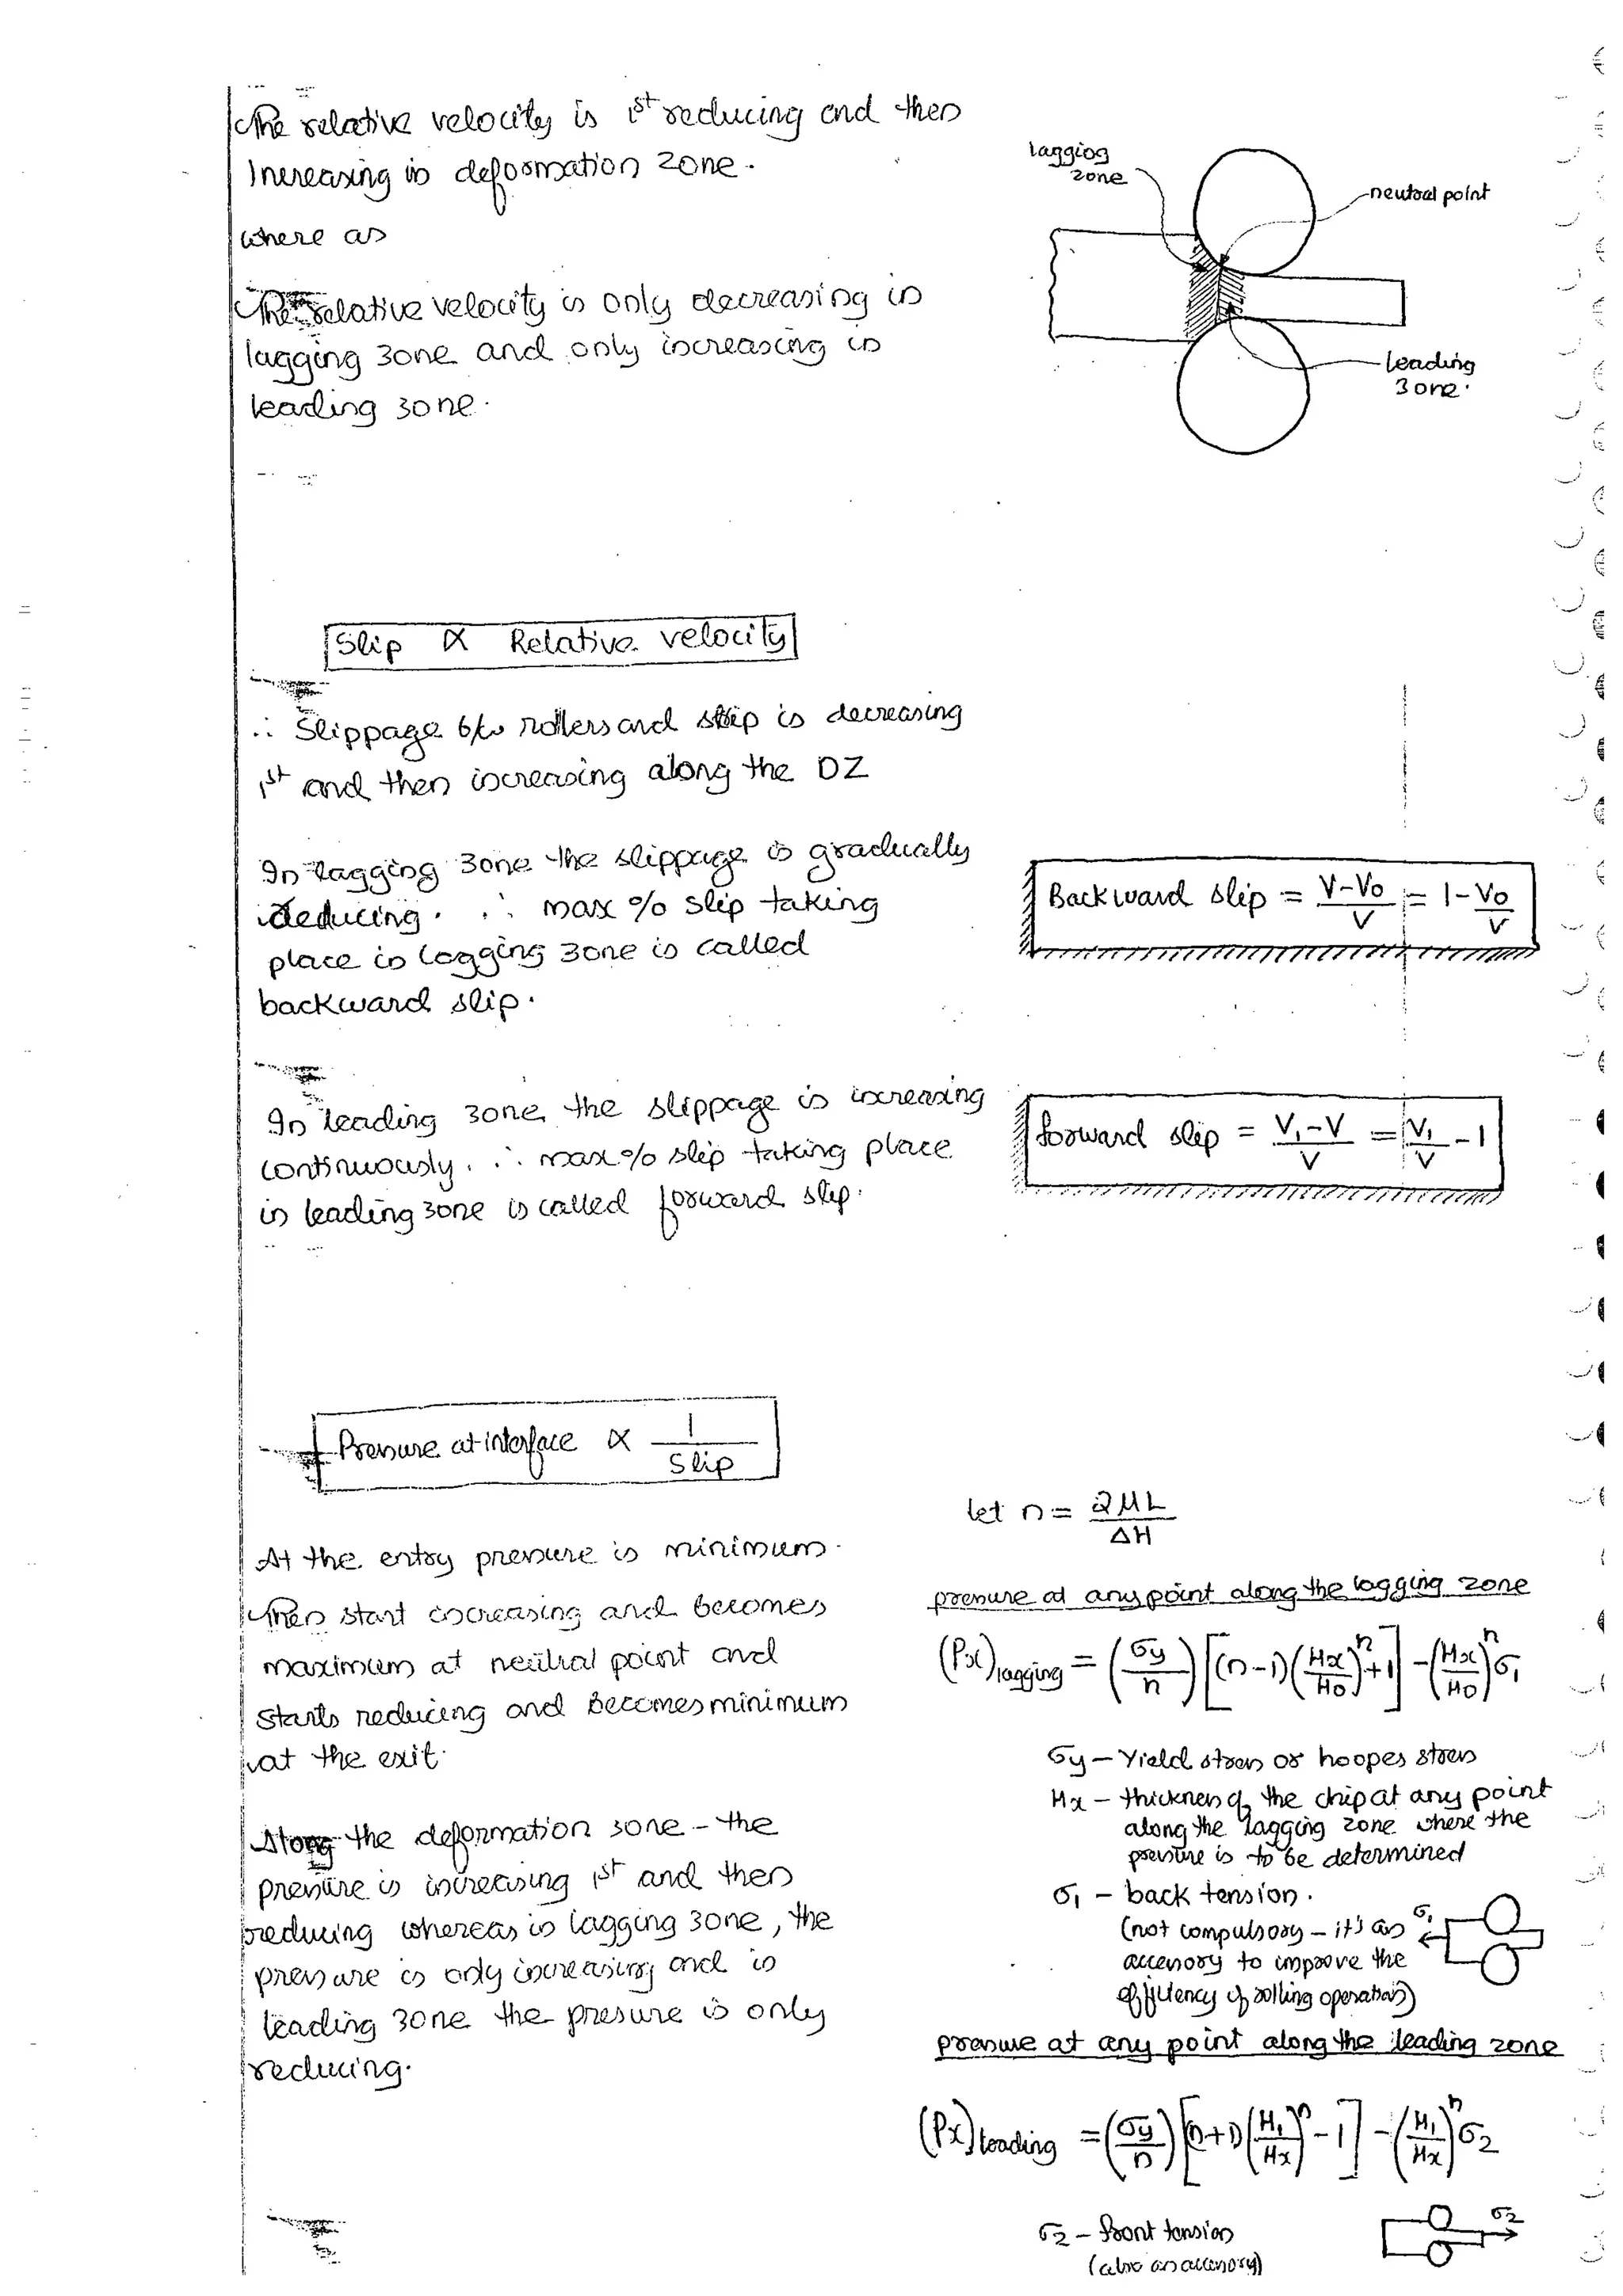 The relative velocity is 1st reducing and then
Increasing in deformation zone.
where as
The relative velocity is only decreasing in
lagging zone and only increasing in
leading zone.
lagging
zone
neutral point
leading
zone.
Slip ∝ Relative velocity
∴ Slippage b/w rollers and strip is decreasing
1st and then increasing along the DZ
In lagging zone the slippage is gradually
reducing. ∴ max % slip taking
place in lagging zone is called
backward slip.
Backward slip = (V-V0)/V = 1-V0/V
In leading zone, the slippage is increasing
continuously. ∴ max % slip taking place
in leading zone is called forward slip.
forward slip = (V1-V)/V = V1/V - 1
Pressure at interface ∝ 1/Slip
At the entry pressure is minimum.
Then start increasing and becomes
maximum at neutral point and
starts reducing and becomes minimum
at the exit.
Along the deformation zone - the
pressure is increasing 1st and then
reducing whereas in lagging zone, the
pressure is only increasing and in
leading zone the presure is only
reducing.
let n = 2μL/ΔH
pressure at any point along the lagging zone
(Px)lagging = (σy/n) [(n-1)(Hx/H0)^n+1] - (Hx/H0)^n σ1
σy - Yield stress or hoopes stress
Hx - thickness of the chip at any point
along the lagging zone where the
pressure is to be determined
σ1 - back tension.
(not compulsory - it's an
accessory to improve the
efficiency of rolling operation)
σ1
pressure at any point along the leading zone
(Px)leading = (σy/n) [(n+1)(H1/Hx)^n - 1] - (H1/Hx)^n σ2
σ2 - front tension
(also an accessory)
σ2